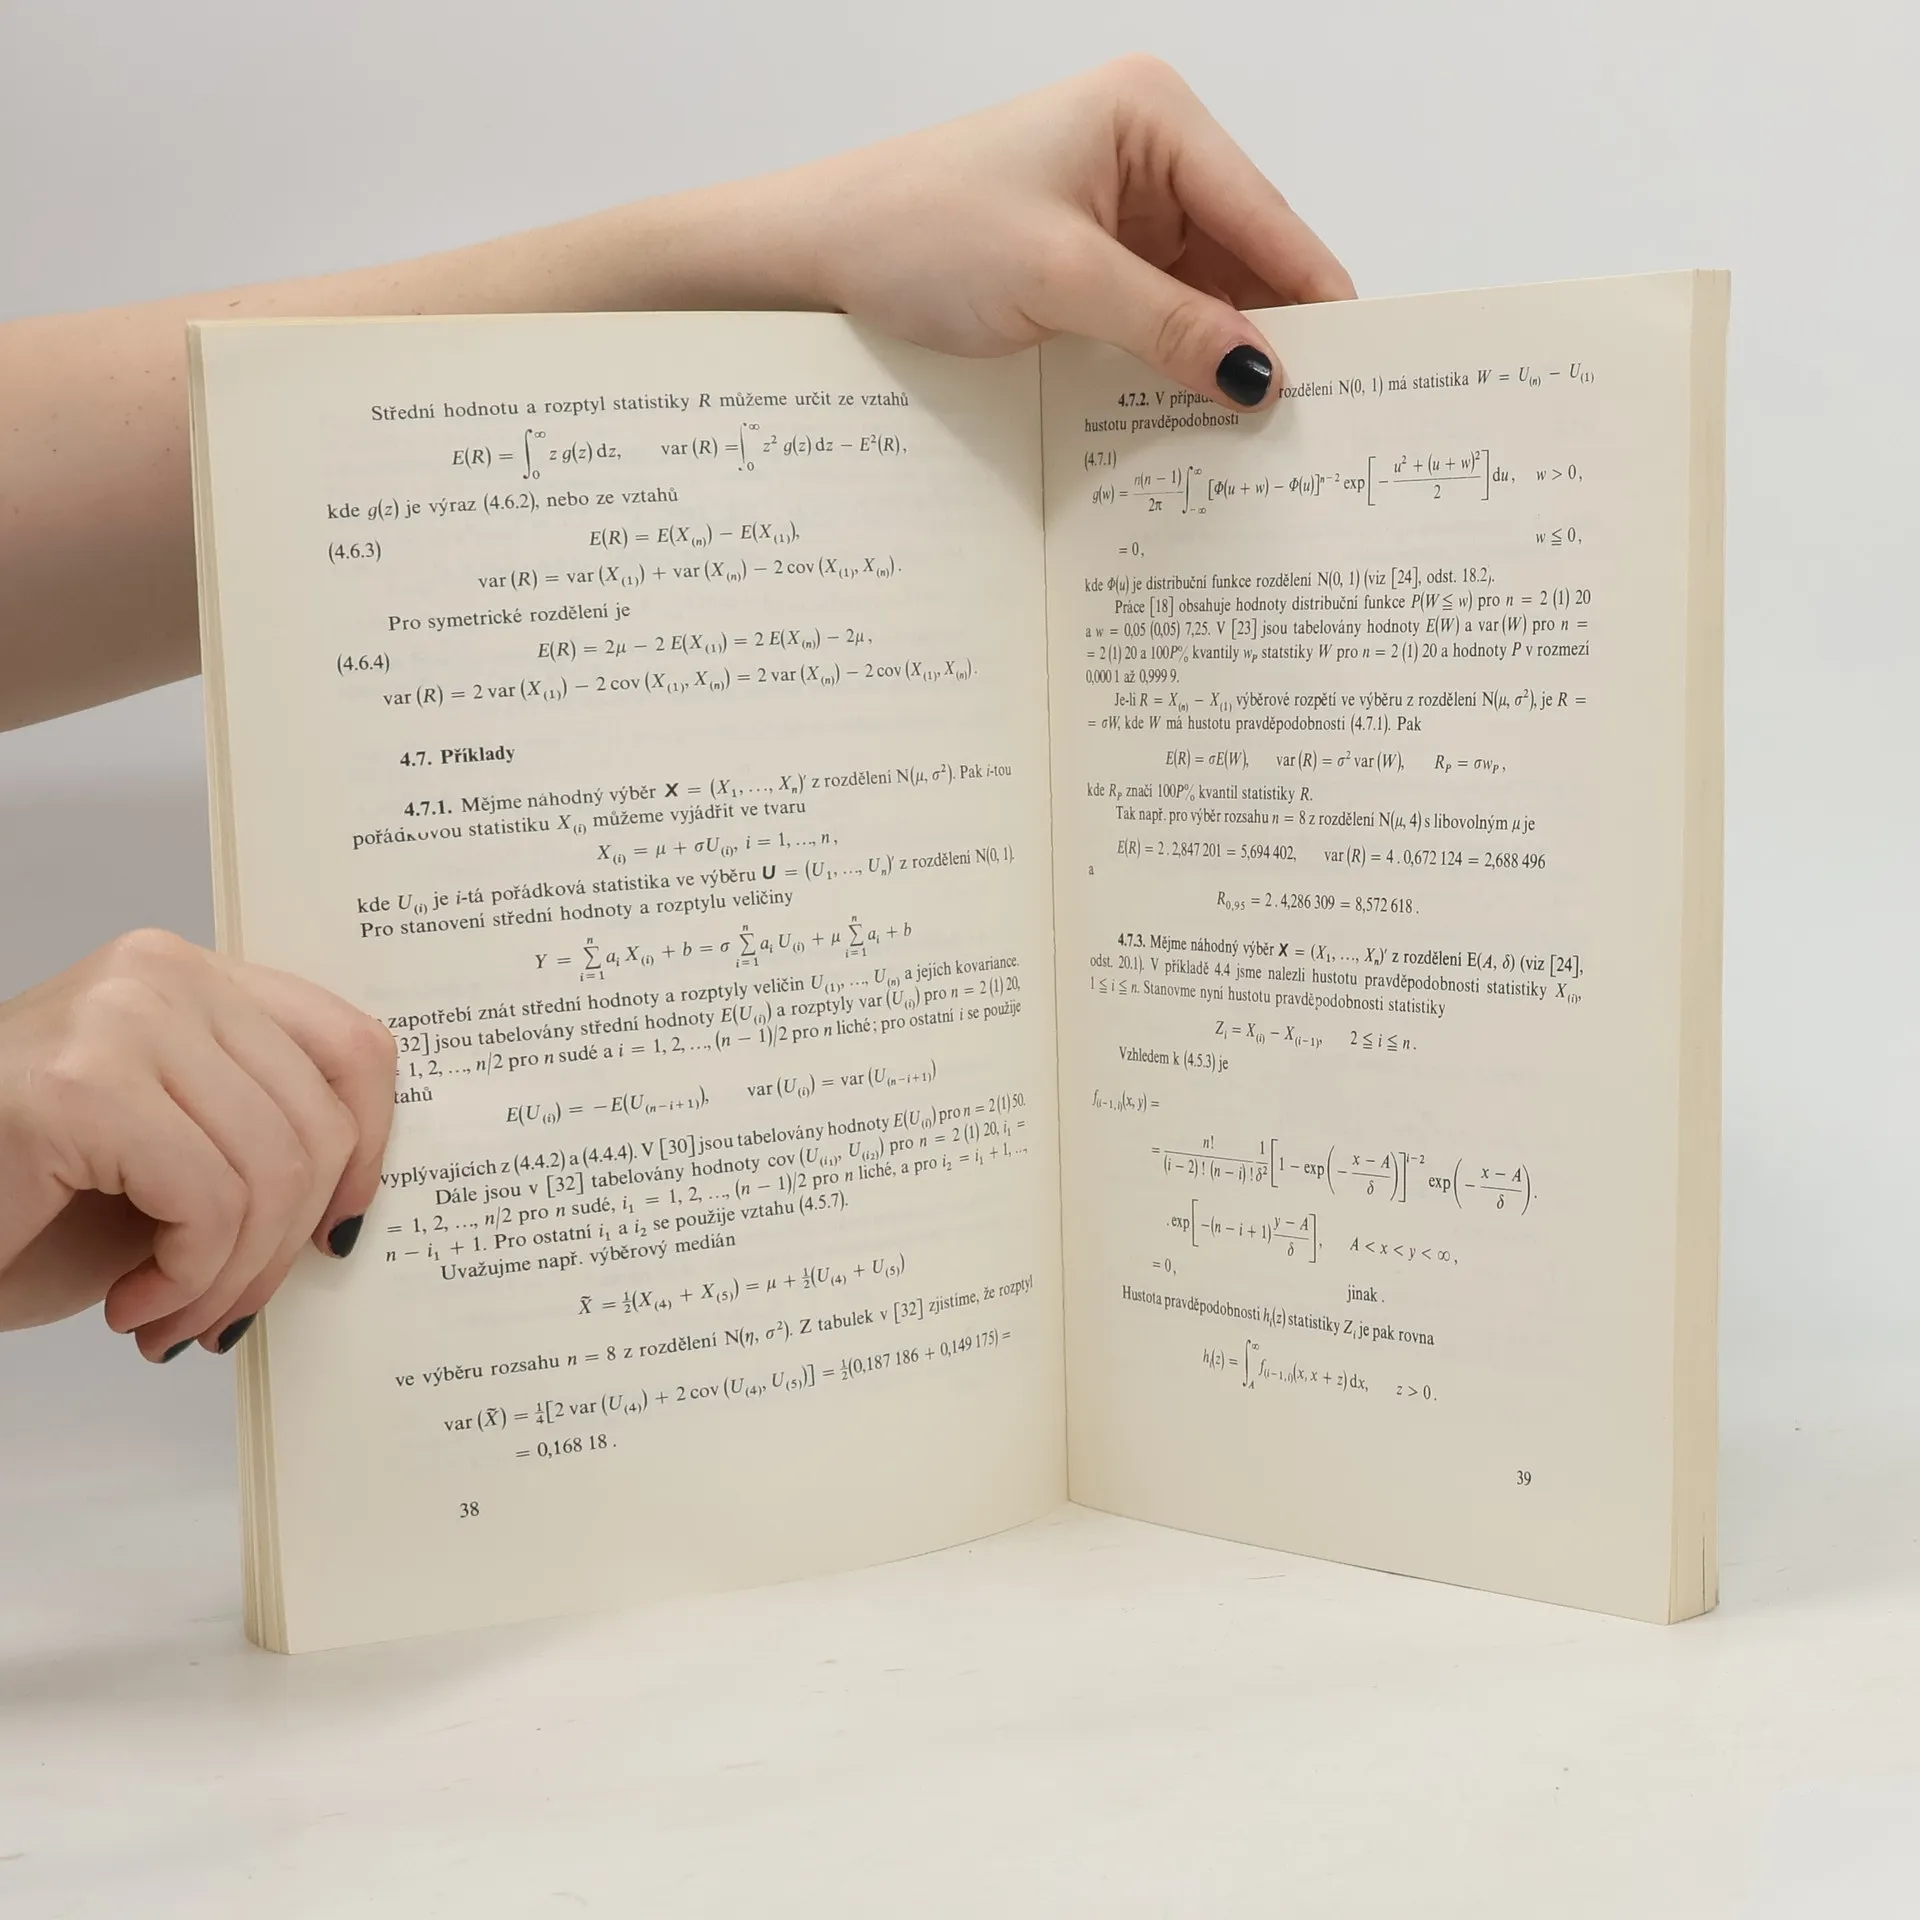 Střední hodnotu a rozptyl statistiky R můžeme určit ze vztahů
E(R) = ∫₀^∞ z g(z) dz, var (R) = ∫₀^∞ z² g(z) dz − E²(R),
kde g(z) je výraz (4.6.2), nebo ze vztahů
(4.6.3) E(R) = E(X₍ₙ₎) − E(X₍₁₎),
var (R) = var (X₍₁₎) + var (X₍ₙ₎) − 2 cov (X₍₁₎, X₍ₙ₎).
Pro symetrické rozdělení je
(4.6.4) E(R) = 2μ − 2 E(X₍₁₎) = 2 E(X₍ₙ₎) − 2μ,
var (R) = 2 var (X₍₁₎) − 2 cov (X₍₁₎, X₍ₙ₎) = 2 var (X₍ₙ₎) − 2 cov (X₍₁₎, X₍ₙ₎).
4.7. Příklady
4.7.1. Mějme náhodný výběr X = (X₁, ..., Xₙ)′ z rozdělení N(μ, σ²). Pak i-tou
pořádkovou statistiku X₍ᵢ₎ můžeme vyjádřit ve tvaru
X₍ᵢ₎ = μ + σU₍ᵢ₎, i = 1, ..., n,
kde U₍ᵢ₎ je i-tá pořádková statistika ve výběru U = (U₁, ..., Uₙ)′ z rozdělení N(0, 1).
Pro stanovení střední hodnoty a rozptylu veličiny
Y = ∑ᵢ₌₁ⁿ aᵢ X₍ᵢ₎ + b = σ ∑ᵢ₌₁ⁿ aᵢ U₍ᵢ₎ + μ ∑ᵢ₌₁ⁿ aᵢ + b
zapotřebí znát střední hodnoty a rozptyly veličin U₍₁₎, ..., U₍ₙ₎ a jejich kovariance.
[32] jsou tabelovány střední hodnoty E(U₍ᵢ₎) a rozptyly var (U₍ᵢ₎) pro n = 2 (1) 20,
= 1, 2, ..., n/2 pro n sudé a i = 1, 2, ..., (n − 1)/2 pro n liché; pro ostatní i se použije
tahů
E(U₍ᵢ₎) = −E(U₍ₙ₋ᵢ₊₁₎), var (U₍ᵢ₎) = var (U₍ₙ₋ᵢ₊₁₎)
vyplývajících z (4.4.2) a (4.4.4). V [30] jsou tabelovány hodnoty E(U₍ᵢ₎) pro n = 2 (1) 50.
Dále jsou v [32] tabelovány hodnoty cov (U₍ᵢ₁₎, U₍ᵢ₂₎) pro n = 2 (1) 20, i₁ =
= 1, 2, ..., n/2 pro n sudé, i₁ = 1, 2, ..., (n − 1)/2 pro n liché, a pro i₂ = i₁ + 1, ...,
n − i₁ + 1. Pro ostatní i₁ a i₂ se použije vztahu (4.5.7).
Uvažujme např. výběrový medián
X̃ = ½(X₍₄₎ + X₍₅₎) = μ + ½(U₍₄₎ + U₍₅₎)
ve výběru rozsahu n = 8 z rozdělení N(η, σ²). Z tabulek v [32] zjistíme, že rozptyl
var (X̃) = ¼[2 var (U₍₄₎) + 2 cov (U₍₄₎, U₍₅₎)] = ½(0,187 186 + 0,149 175) =
= 0,168 18 .
38
4.7.2. V případ rozdělení N(0, 1) má statistika W = U₍ₙ₎ − U₍₁₎
hustotu pravděpodobnosti
(4.7.1)
g(w) = n(n − 1)/2π ∫₋∞^∞ [Φ(u + w) − Φ(u)]ⁿ⁻² exp [− (u² + (u + w)²)/2] du, w > 0,
= 0, w ≦ 0,
kde Φ(u) je distribuční funkce rozdělení N(0, 1) (viz [24], odst. 18.2).
Práce [18] obsahuje hodnoty distribuční funkce P(W ≦ w) pro n = 2 (1) 20
a w = 0,05 (0,05) 7,25. V [23] jsou tabelovány hodnoty E(W) a var (W) pro n =
= 2 (1) 20 a 100P% kvantily w_P statstiky W pro n = 2 (1) 20 a hodnoty P v rozmezí
0,000 1 až 0,999 9.
Je-li R = X₍ₙ₎ − X₍₁₎ výběrové rozpětí ve výběru z rozdělení N(μ, σ²), je R =
= σW, kde W má hustotu pravděpodobnosti (4.7.1). Pak
E(R) = σE(W), var (R) = σ² var (W), R_P = σw_P,
kde R_P značí 100P% kvantil statistiky R.
Tak např. pro výběr rozsahu n = 8 z rozdělení N(μ, 4) s libovolným μ je
E(R) = 2 . 2,847 201 = 5,694 402, var (R) = 4 . 0,672 124 = 2,688 496
a
R₀,₉₅ = 2 . 4,286 309 = 8,572 618 .
4.7.3. Mějme náhodný výběr X = (X₁, ..., Xₙ)′ z rozdělení E(A, δ) (viz [24],
odst. 20.1). V příkladě 4.4 jsme nalezli hustotu pravděpodobnosti statistiky X₍ᵢ₎,
1 ≦ i ≦ n. Stanovme nyní hustotu pravděpodobnosti statistiky
Zᵢ = X₍ᵢ₎ − X₍ᵢ₋₁₎, 2 ≦ i ≦ n.
Vzhledem k (4.5.3) je
f₍ᵢ₋₁,ᵢ₎(x, y) =
= n!/((i − 2)! (n − i)!) 1/δ² [1 − exp(− (x − A)/δ)]ⁱ⁻² exp(− (x − A)/δ) .
. exp[−(n − i + 1) (y − A)/δ], A < x < y < ∞,
= 0, jinak .
Hustota pravděpodobnosti hᵢ(z) statistiky Zᵢ je pak rovna
hᵢ(z) = ∫_A^∞ f₍ᵢ₋₁,ᵢ₎(x, x + z) dx, z > 0 .
39